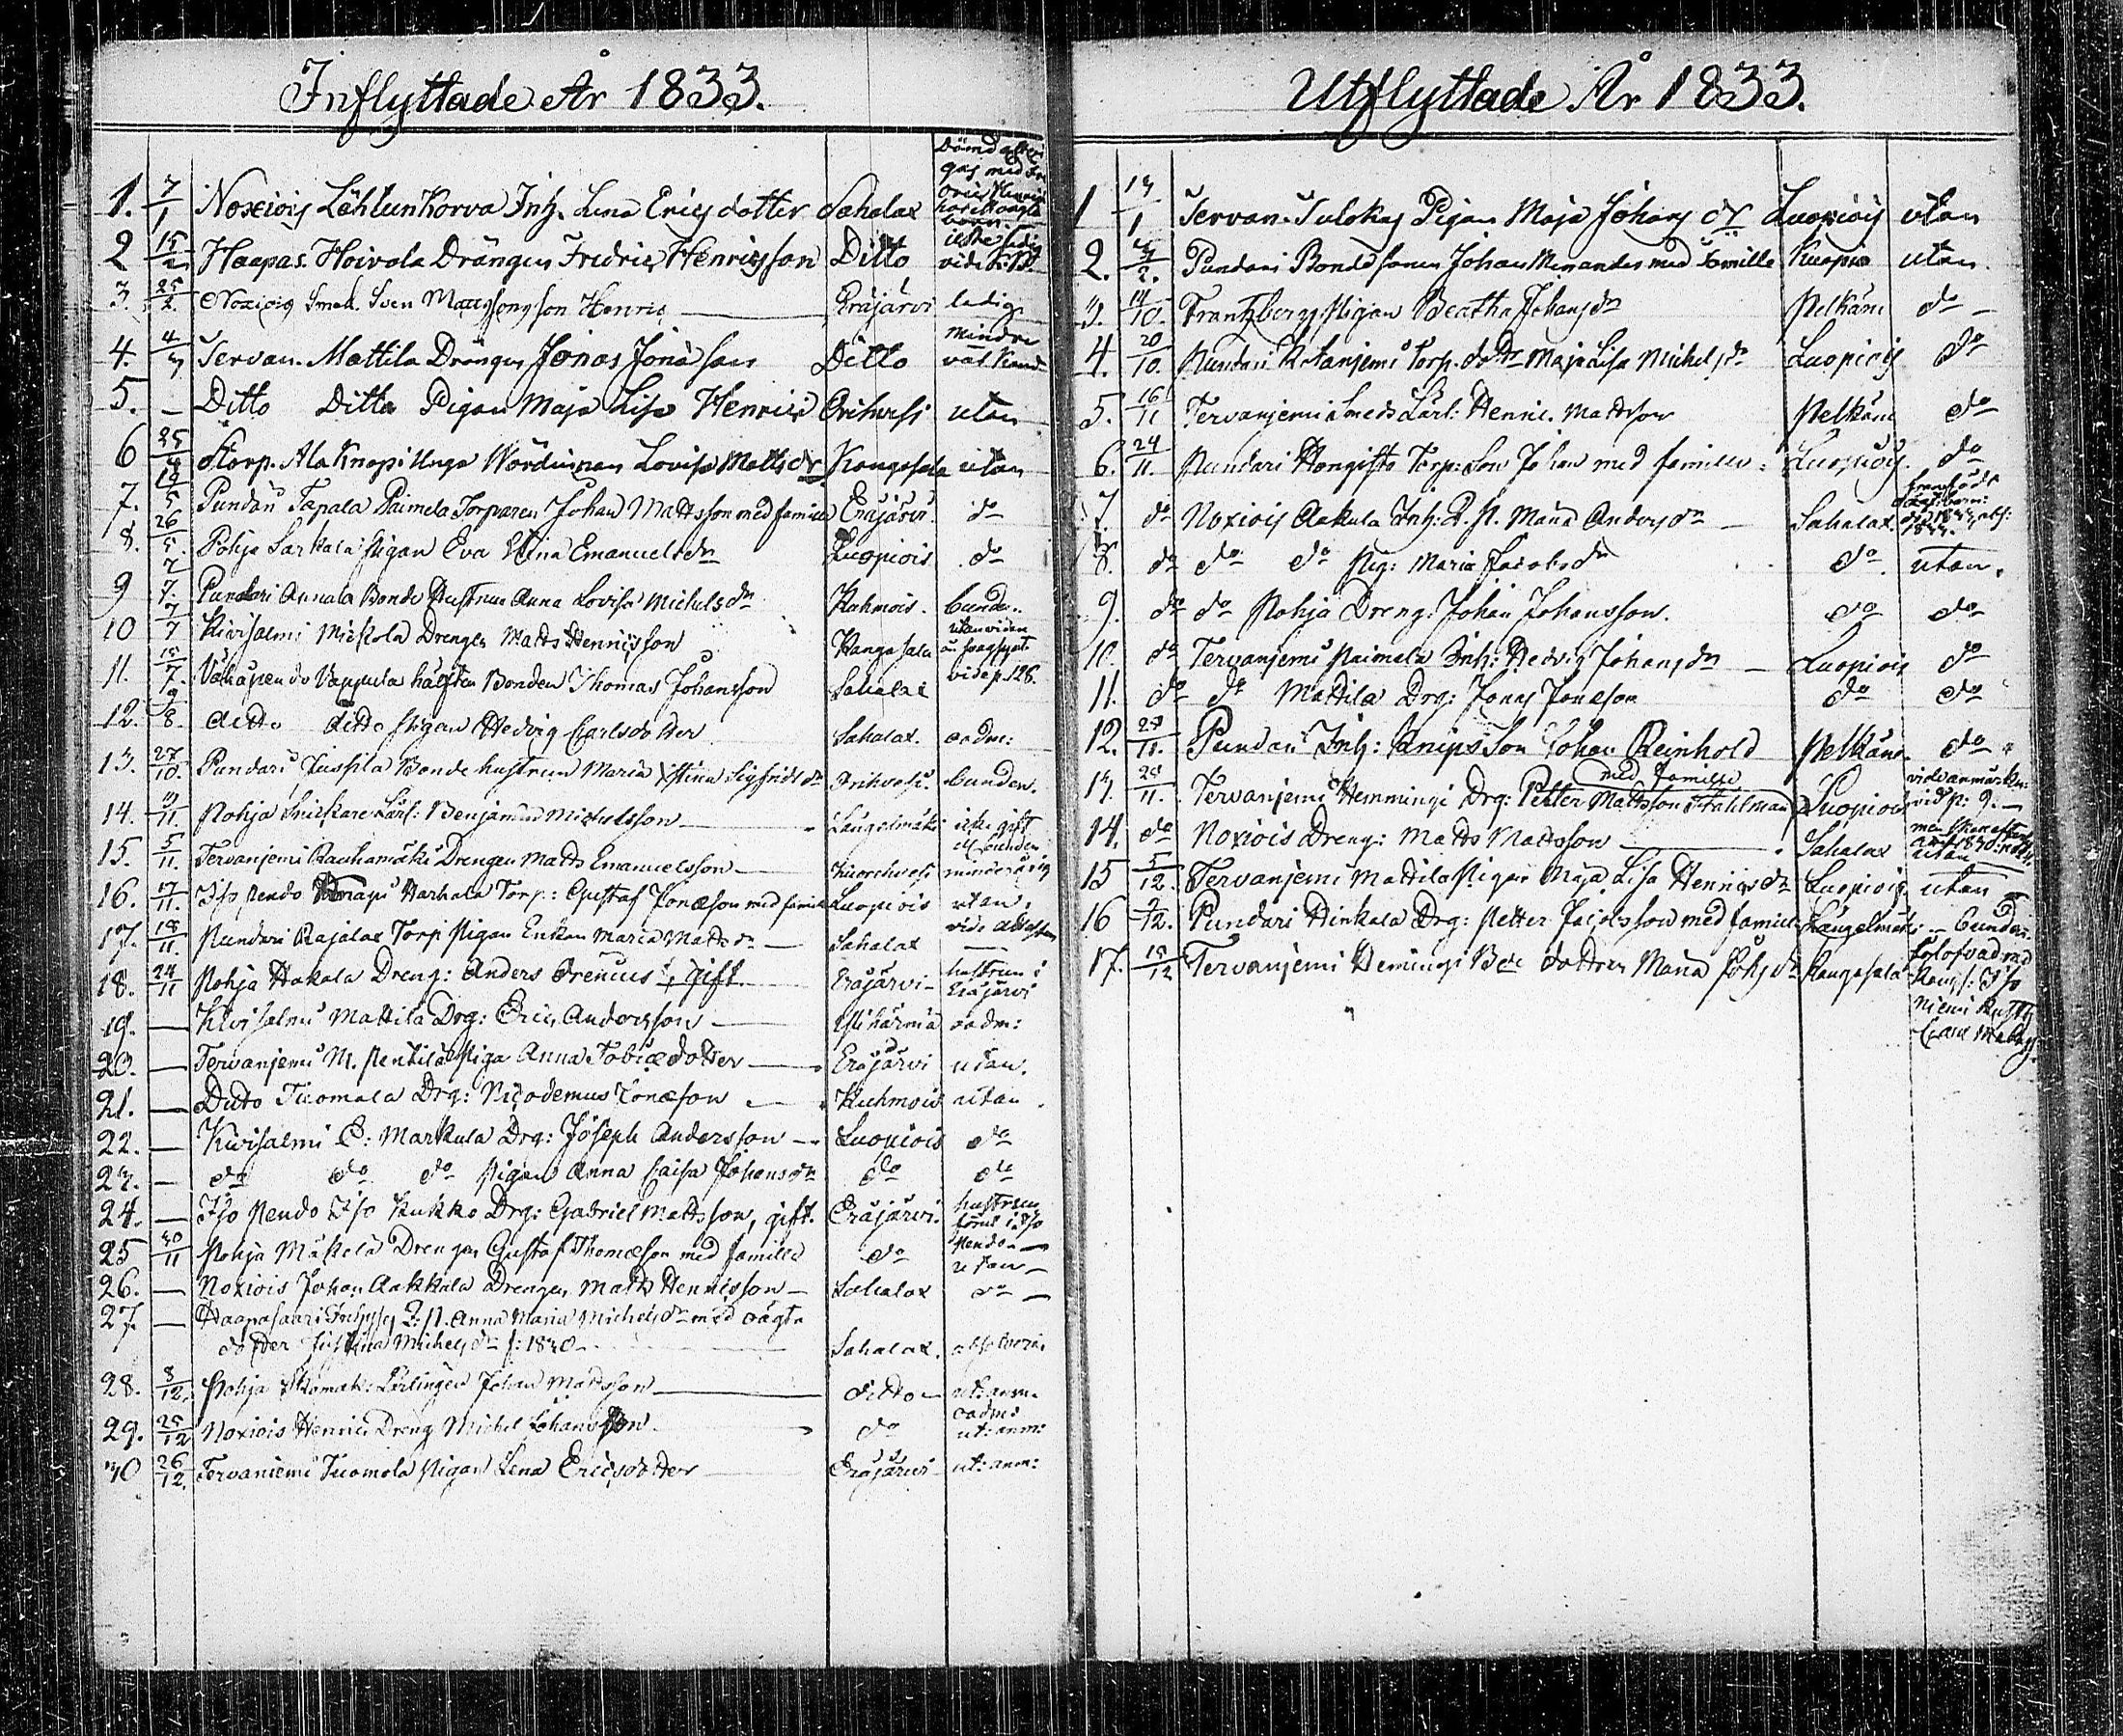 Inflyttade År 1833.
1. 7/1 Noxiois Inh. Lena Erics dotter Sahalax
2 15/2 Haapas. Hoivala Drängen Fredric Henricsson Ditto vide K.B.
3. 25/2. Noxiois Smed. Sven Mattssons son Henric Eräjärvi ledig
4. 4/3 Tervan. Mattila Drängen Jonas Jonasson Ditto mindre väl känd
5. — Ditto Ditto Pigan Maja Lisa Henricsd Orihvesi utan
6 25/4 Storp. Ala Knapi Unga Wördinnan Lovisa Matts dr Kangasala utan
7. 12/5 Pundari Tapala Paimela Torparen Johan Mattsson med famille Eräjärvi do
8. 26/5. Pohja Sarkala Pigan Eva Stina Emanuelsdr Luopiois do
9 7/7. Pundari Annala Bonde Hustrun Anna Lovisa Michelsdr Kuhmois. bunden.
10 7/7 Kivisalmi Mickola Drengen Matts Henricsson Kangasala
11. 15/7. Vähäpendo Vappula hälften Bonden Thomas Johansson Sahalax vide p. 126.
12. 9/8. ditto ditto Pigan Hedvig Carlsdotter Sahalax. oadm:
13. 27/10. Pundari Jussila Bonde hustrun Maria Stina Sigfridsdr Orihvesi. bunden.
14. 3/11. Pohja Snickare Lärl: Benjamin Michelsson Längelmäki icke gift el. bunden
15. 5/11. Tervanjemi Rauhamäki Drengen Matts Emanuelsson Kuorehvesi minderårig
16. 17/11. Iso pendo Knapi Harhala Torp: Gustaf Jonæson med famille Luopiois utan.
17. 18/11. Pundari Rajalax Torp Pigan Enkan Maria Matts dr Sahalax vide attesten
18. 24/11 Pohja Hakala Dreng: Anders Grenius, gift Eräjärvi hustrun i Eräjärvi
19. — Kivisalmi Mattila Drg: Eric Andersson Ylihärmä oadm:
20. — Tervanjemi M. Pentilä Piga Anna Tobiædotter Eräjärvi utan.
21. — Dito Tuomola Drg: Nicodemus Jonæson Kuhmois utan
22. — Kivisalmi E: Markula Drg: Joseph Andersson Luopiois do
23. — do do do Pigan Anna Caisa Johansdr do do
24. — Iso Pendo Iso Kukko Drg: Gabriel Mattsson, gift. Eräjärvi. hustrun förut i Iso Pendo
25 30/11 Pohja Mäkelä Drengen Gustaf Thomæson med famille do utan
26. — Noxiois Johan Aakkula Drengen Matts Henricsson Sahalax do
27. — Haapasaari Inhyses Q: P. Anna Maria Michelsdr med oägta
dotter Justina Michelsdr f: 1830 Sahalax.
28. 8/12. Pohja Skomak: Lärlingen Johan Mattsson ditto ut: anm.
29. 25/12 Noxiois Henric Dreng Michel Johansson do oadm: ut: anm:
30 26/12. Tervaniemi Tuomola Pigan Lena Ericsdotter Eräjärvi ut: anm:
Utflyttade År 1833.
1 13/1 Tervan. Pigan Maja Johans dr Luopiois utan
2. 3/2. Pundari Bonde sonen Johan Menander med Famille Kuopio utan
3. 14/10. Frantzberg Pigan Beatha Johansdr Pelkäne do
4. 20/10. Pundari Torp. dotr Maja Lisa Michelsdr Luopiois do
5. 16/11 Tervanjemi Smeds Lärl: Henric. Mattsson Pelkäne do
6. 24/11. Pundari Hongisto Torp: Son Johan med famille Luopiois. do
7. do Noxiois Aakula Inh: Q. P. Maria Andersdr Sahalax
8. do do do Pig: Maria Jacobsdr do utan.
9. do do Pohja Dreng: Johan Johansson. do do
10. do Tervanjemi Paimela Inh: Hedvig Johansdr Luopiois do
11. do do Mattila Drg: Jonas Jonæson do do
12. 27/11. Pundari Inh: Knips Son Johan Reinhold Pelkäne do
13. 28/11. Tervanjemi Hemmingi Drg: Petter Mattsson Stahlman med famille Luopiois vide anmärkn: vid p: 9.
14. do Noxiois Dreng: Matts Mattsson Sahalax utan
15 5/12. Tervanjemi Mattila Pigan Maja Lisa Henricsdr Luopiois utan
16 9/12. Pundari Hinkala Drg: Petter Jacobsson med famille Längelmäki bunden.
17. 15/12 Tervanjemi Hemingi Bde dottren Maria Johsdr Kangasala förlofvad med Kangs: Iso Niemi